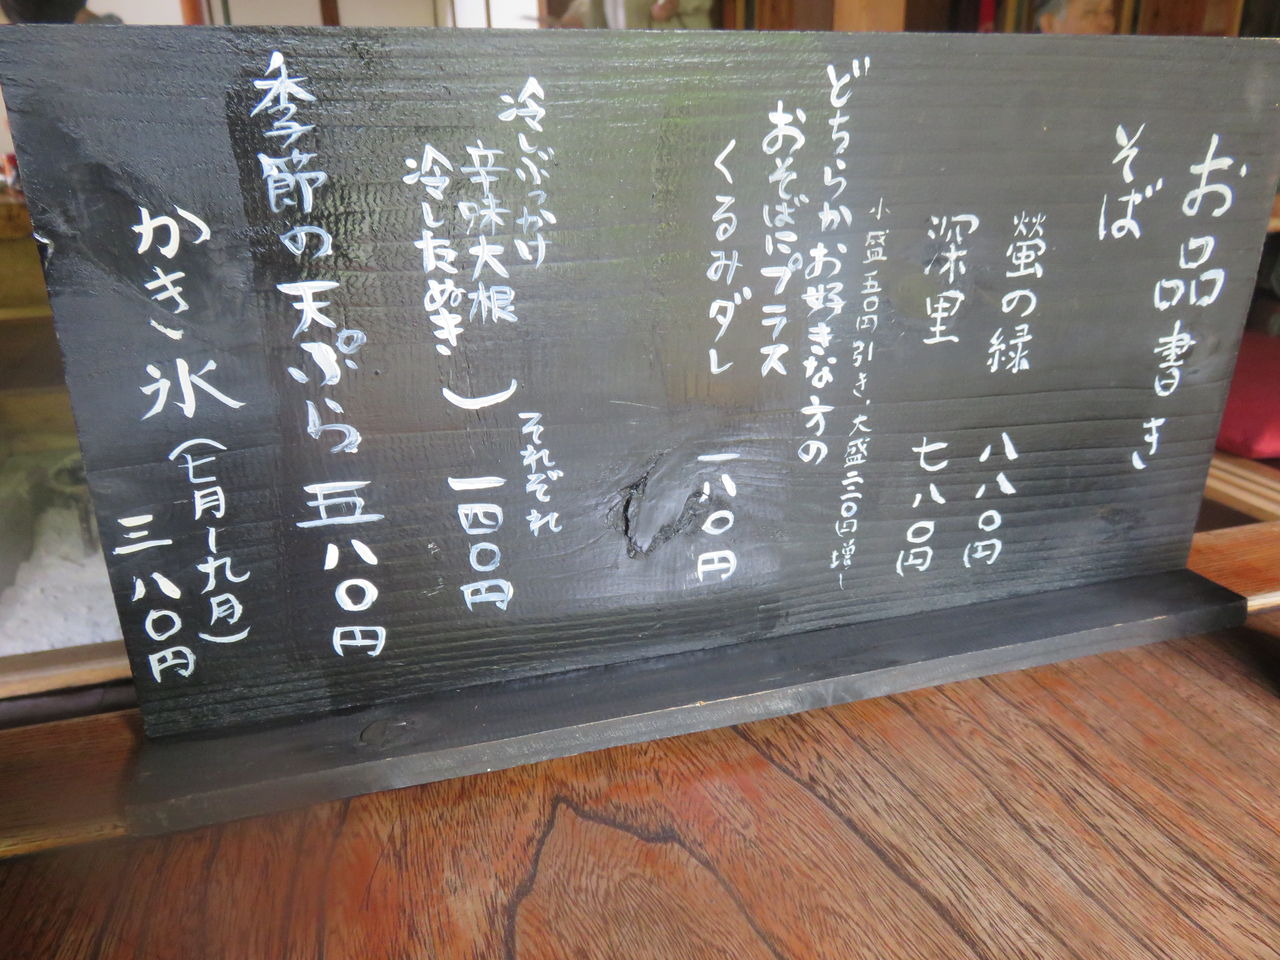 お品書き
そば
螢の緑 八八〇円
深里 七八〇円
小盛五〇円引き、大盛二二〇円増し
どちらかお好きな方の
おそばにプラス
くるみダレ 一八〇円
冷しぶっかけ
辛味大根
冷したぬき
それぞれ
一四〇円
季節の天ぷら 五八〇円
かき氷(七月ー九月)
三八〇円